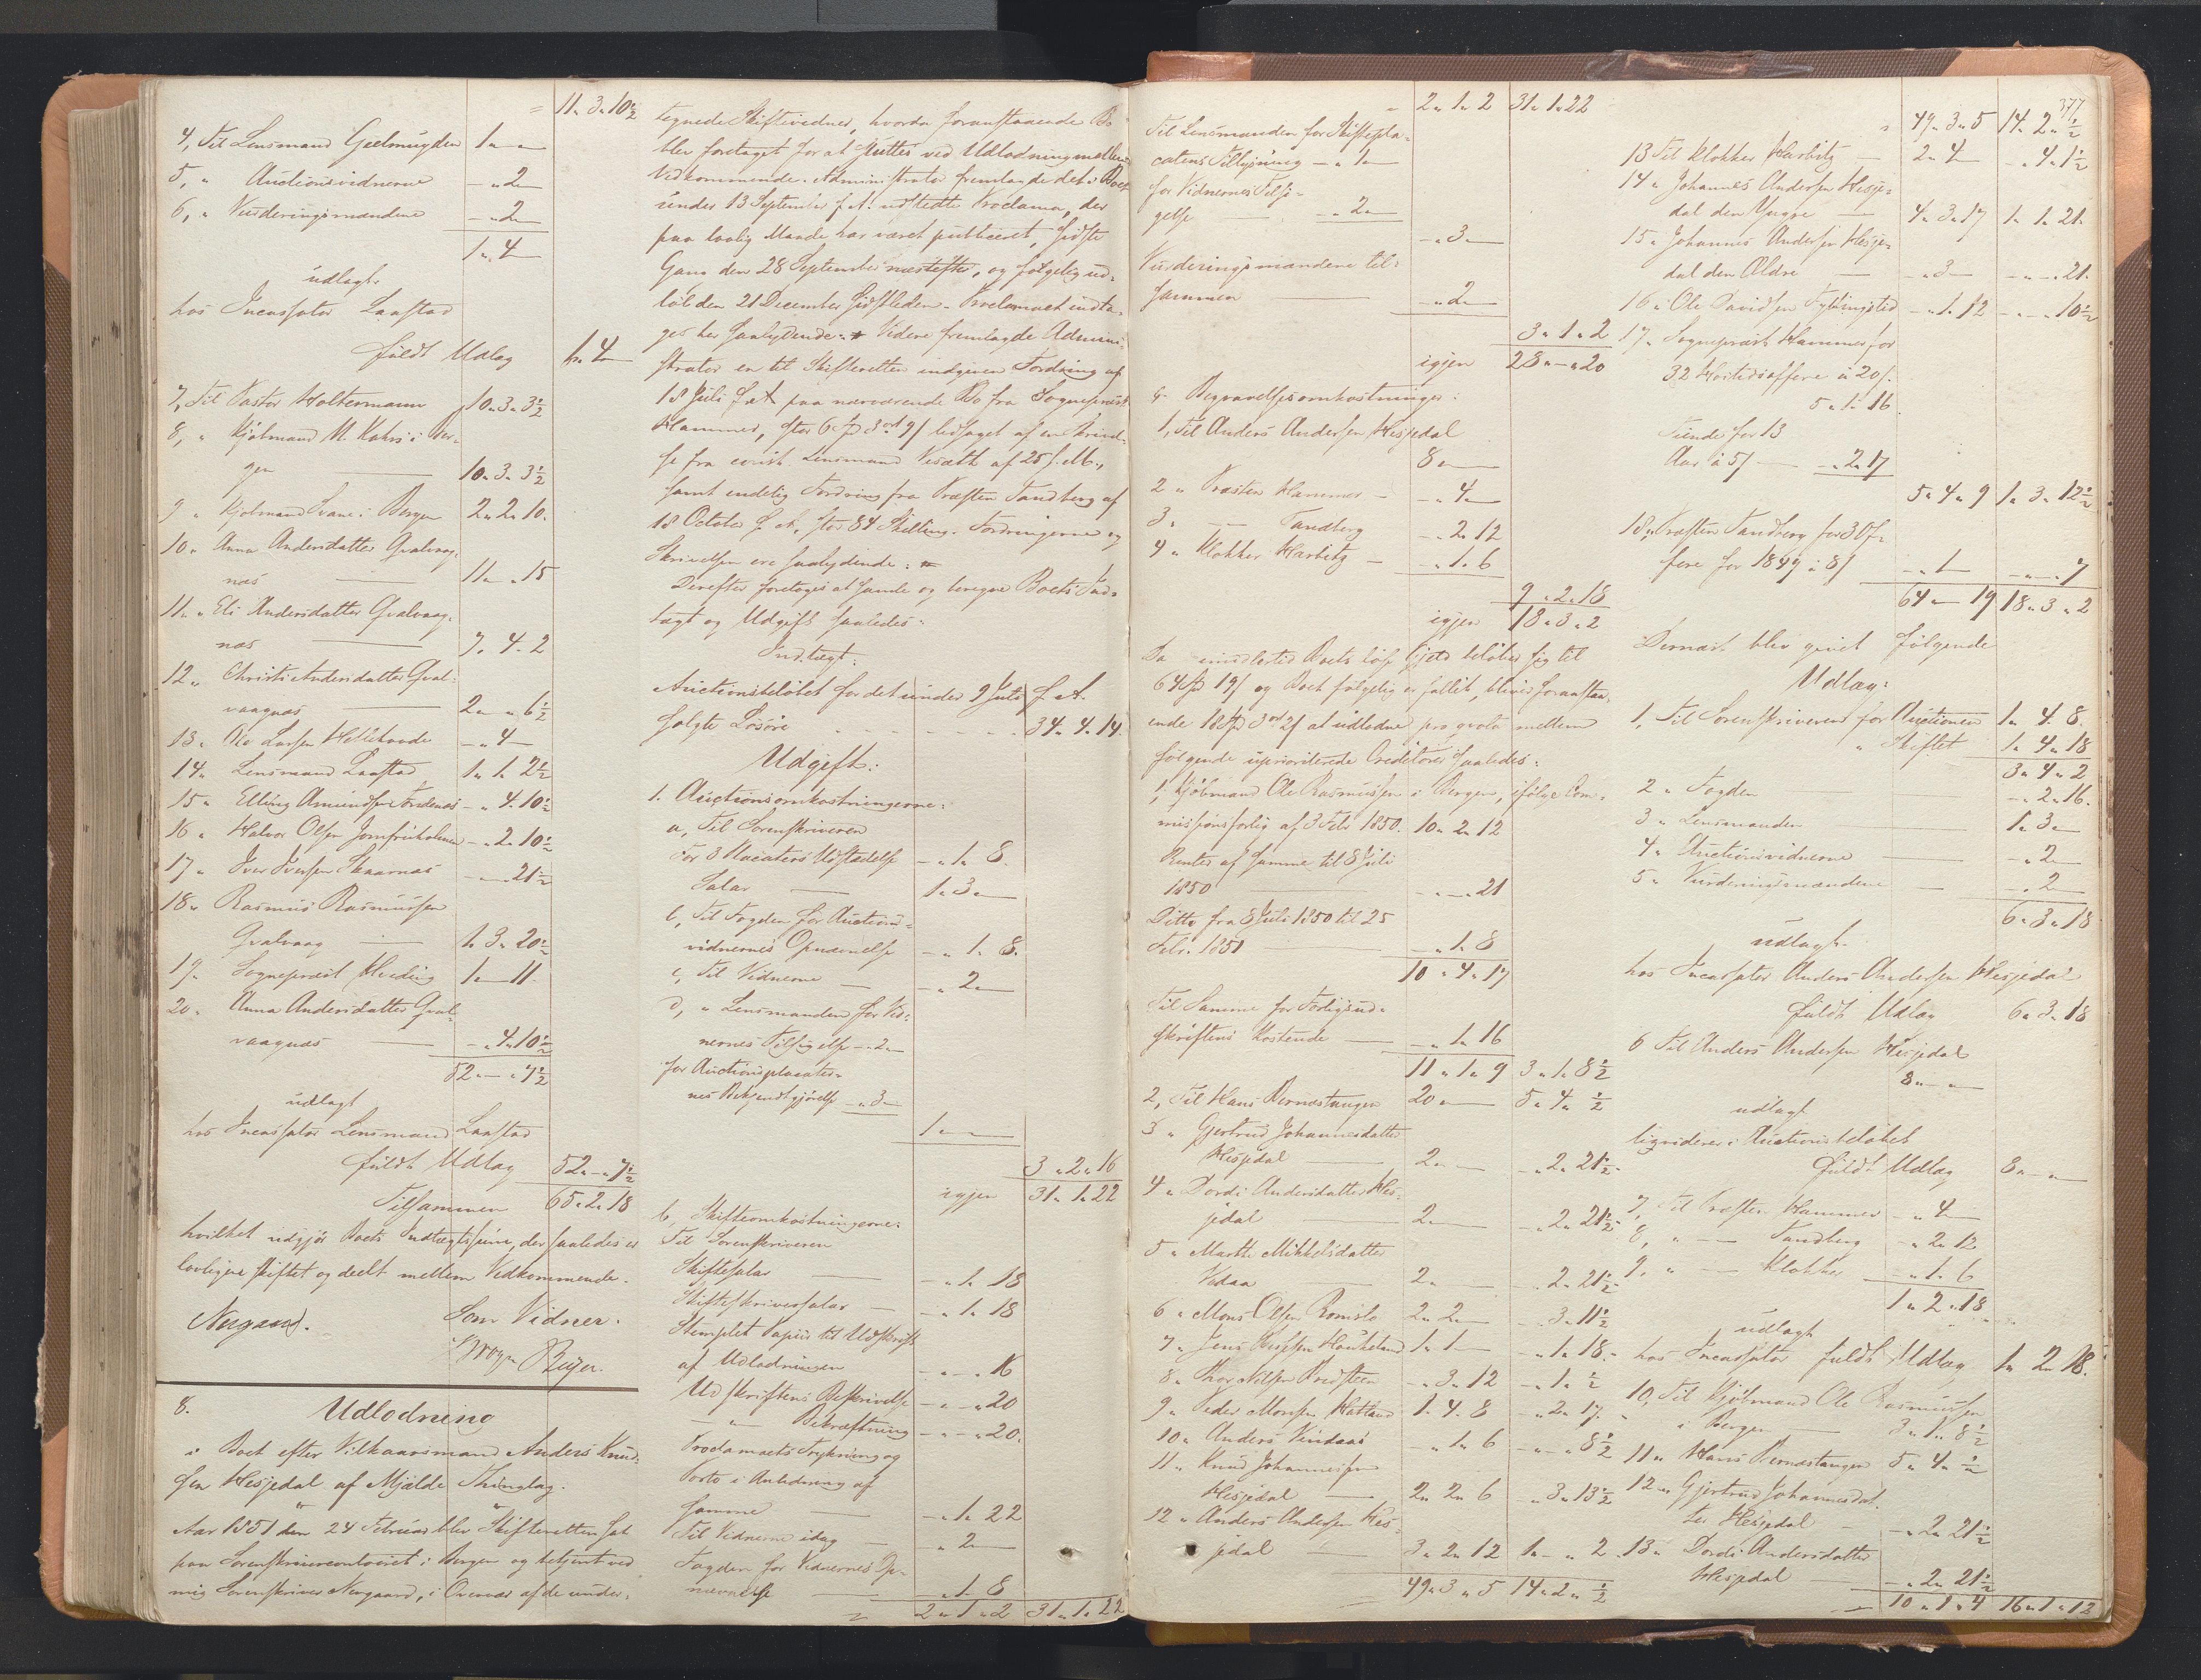 = 11. 3. 10½
4, Til Lensmand Gjelmuyden 1 " "
5, " Auctionsvidnerne - " 2 "
6, " Vurderingsmændene - " 2 "
1 " 4
udlagt
hos Incassator Laastad
fuldt Udlæg 1 " 4
7, Til Pastor Woltermann 10. 3. 3½
8, " Kjøbmand M. Kahrs i Ber-
gen 10. 3. 3½
9 " Kjøbmand Svane i Bergen 2. 2. 10.
10. Anna Andersdatter Qvalvaag-
næs 11 " " 15
11. " Eli Andersdatter Qvalvaag-
næs 7. 4. 2
12 " Christi Andersdatter Qval-
vaagnæs 2 " " 6½
13. Ole Larsen - " 4
14. Lensmand Laastad 1. 1. 2½
15 " Elling Amundsen - " 4. 10½
16 " Halvor Olsen Jomfruholmen - " 2. 10½
17 " Iver Iversen - " - 21½
18 " Rasmus Rasmussen
Qvalvaag 1. 3. 20½
19. Sognepræst 1 " 11.
20. Anna Andersdatter Qval-
vaagnæs - " 4. 10½
52 " - " 7½
udlagt
hos Incassator Lensmand Laastad
fuldt Udlæg 52 " - " 7½
Tilsammen 65. 2. 18
hvilket udgjør Boets Indtægtssum, der saaledes er
lovligen skiftet og deelt mellem Vedkommende.
Nergaard. Som Vidner.
Beyer.
8. Udlodning
i Boet efter Vilkaarsmand Anders Knud-
sen Hesjedal af Mjelde Thinglag.
Aar 1851 den 24 Februar blev Skifteretten sat
paa Sorenskrivercontoiret i Bergen og betjent ved
mig Sorenskriver Nergaard, i Overvær af de under-
tegnede Skiftevidner, hvorda foranstaaende Bo
blev foretaget for at sluttes ved Udlodning mellem
Vedkommende. Administrator fremlagde det i Boet
under 13 September f. A. udstedte Proclama, der
paa lovlig Maade har været publiceret, sidste
Gang den 28 September næstefter, og følgelig ud-
løb den 21 December sidstleden. Proclamaet indta-
ges her saalydende: Videre fremlagde Admini-
strator en til Skifteretten indgiven Fordring af
18 Juli f. A. paa nærværende Bo fra Sognepræst
Hammer, stor 6 Spd 3 ort 9 s ledsaget af en Skrivel-
se fra const. Lensmand af 25 s. M.,
samt endelig Fordring fra Præsten Tandberg af
18 October f. A. stor 84 Skilling. Fordringerne og
Skrivelsen ere saalydende:
Derefter foretoges at samle og beregne Boets Ind-
tægt og Udgift saaledes:
Indtægt:
Auctionsbeløbet for det under 9 Juli f. A.
solgte Løsøre 34. 4. 14.
Udgift:
1. Auctionsomkostningerne:
a, Til Sorenskriveren
For 3 Placaters Udstædelse - " 1. 8.
Salær 1. 3 "
b, Til Fogden for Auctions-
vidnernes Opnævnelse - " 1. 8.
c, Til Vidnerne - " 2 "
d, " Lensmanden for Vid-
nernes Tilsigelse - " 2 "
for Auctionsplacater-
nes Bekjendtgjørelse - " 3 "
1 " "
3 " 2 " 16
igjen 31. 1. 22
b, Skifteomkostningerne:
Til Sorenskriveren
Skiftesalær - " 1. 18
Skifteskriversalær - " 1. 18
Stemplet Papiir til Udskrift
af Udlodningen - " - 16
Udskriftens Beskrivelse - " - " 20
- " - Bekræftning - " - " 20.
Proclamaets Trykning og
Porto i Anledning af
samme - " 1. 22
Til Vidnerne idag - " 2 "
Fogden for Vidnernes Op-
nævnelse - " 1. 8
2 " 1 " 2 31. 1. 22
2 " 1 " 2 31. 1. 22
Til Lensmanden for Skiftepla-
catens Tillysning - " 1 "
for Vidnernes Tilsi-
gelse - " 2 "
- " 3 "
Vurderingsmændene til-
sammen - " 2 "
3 " 1 " 2
igjen 28 " - " 20
c. Begravelsesomkostninger:
1, Til Anders Andersen Hesjedal
8 "
2 " Præsten Hammer - " 4 "
3. " Tandberg - " 2. 12
4 " Klokker Harbitz - " 1. 6
9 " 2 " 18
igjen 18 " 3 " 2
Da imidlertid Boets løse Gjeld beløber sig til
64 Spd 19 s og Boet følgelig er fallit, bliver foranstaa-
ende 18 Spd 3 ort 2 s at udlodne pro qvota mellem
følgende uprioriterede Creditorer saaledes:
1, Kjøbmand Ole Rasmussen i Bergen, ifølge Com-
missionsforlig af 3 Febr 1850. 10 " 2 " 12
Renter af samme til 8 Juli
1850 - " - " 21
Ditto fra 8 Juli 1850 til 25
Febr. 1851 - " 1. 8
10 " 4 " 17
Til Samme for Forligsud-
skriftens Kostende - " 1. 16
11 " 1 " 9 3 " 1. 8½
2, Til Hans Bernæstangen 20 " 5 " 4 " ½
3 " Gjertrud Johannesdatter
Hesjedal 2 " - " 2. 21½
4 " Dordi Andersdatter Hes-
jedal 2 " - " 2. 21½
5 " Marthe Mikkelsdatter
Vedaa 2 " - " 2. 21½
6 " Mons Olsen Romslo 2. 2 " - " 3. 11½
7 " Jens Haukeland 1. 1 " - " 1. 18.
8 " Thor Nilsen - " 3 " 12 - " 1. " ½
9 " Peder Monsen Hatland 1. 4. 8 - " 2 " 17.
10 " Anders - " 1 " 6 - " - " 8½
11 " Knud Johannessen
Hesjedal 2 " 2 " 6 - " 3. 13½
12 " Anders Andersen Hes-
jedal 3 " 2 " 12 1 " - " 2
49 " 3 " 5 14 " 2 " ½
377
49 " 3 " 5 14. 2 " ½
13 Til Klokker Harbitz 2 " 4 - " 4 " 1½
14 " Johannes Andersen Hesje-
dal den Yngre 4. 3. 17 1. 1. 21.
15 " Johannes Andersen Hesje-
dal den Ældre - " 3 - " - " 21.
16 " Ole Davidsen - " 1. 12 - " - " 10½
17. Sognepræst Hammer for
32 Høitidsoffere à 20 s.
5 " 1 " 16
Tiende for 13
Aar à 5 s - " 2 " 17
5 " 4 " 9 1 " 3 " 12½
18, Præsten Tandberg for 3 Of-
fere for 1849 à 8 s - " 1 - " - " 7
64 " - 19 18 " 3 " 2
Dernæst blev givet følgende
Udlæg:
1, Til Sorenskriveren for Auctionen 1 " 4. 8.
" Skiftet 1. 4 " 18
3 " 4 " 2
2 " Fogden - " 2 " 16.
3 " Lensmanden 1. 3 "
4 " Auctionsvidnerne - " 2
5 " Vurderingsmændene - " 2
6 " 3 " 18
udlagt
hos Incassator Anders Andersen Hesjedal
fuldt Udlæg 6 " 3. 18
6 Til Anders Andersen Hesjedal
8 " "
udlagt
liqviderer i Auctionsbeløbet
fuldt Udlæg 8 " - "
7, Til Præsten Hammer - " 4
8, " - Tandberg - " 2 " 12
9, " - Klokker - " 1. 6
1 " 2 " 18
udlagt
hos Incassator fuldt Udlæg 1 " 2 " 18.
10, Til Kjøbmand Ole Rasmussen
i Bergen 3 " 1. 8½
11 " Hans Bernæstangen 5 " 4 " ½
12 " Gjertrud Johannesdat-
ter Hesjedal - " 2 " 21½
13 " Dordi Andersdatter
Hesjedal - " 2 " 21½
10 " 1 " 4 16 " 1 " 12